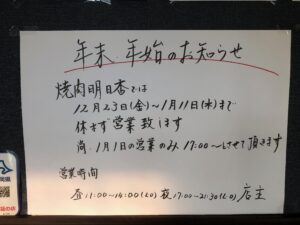 年末.年始のお知らせ
焼肉明日香では
12月23日(金)〜1月11日(水)まで
休まず営業致します
尚 1月1日の営業のみ17:00〜とさせて頂きます
営業時間
昼11:00〜14:00(LO) 夜17:00〜21:30(LO) 店主